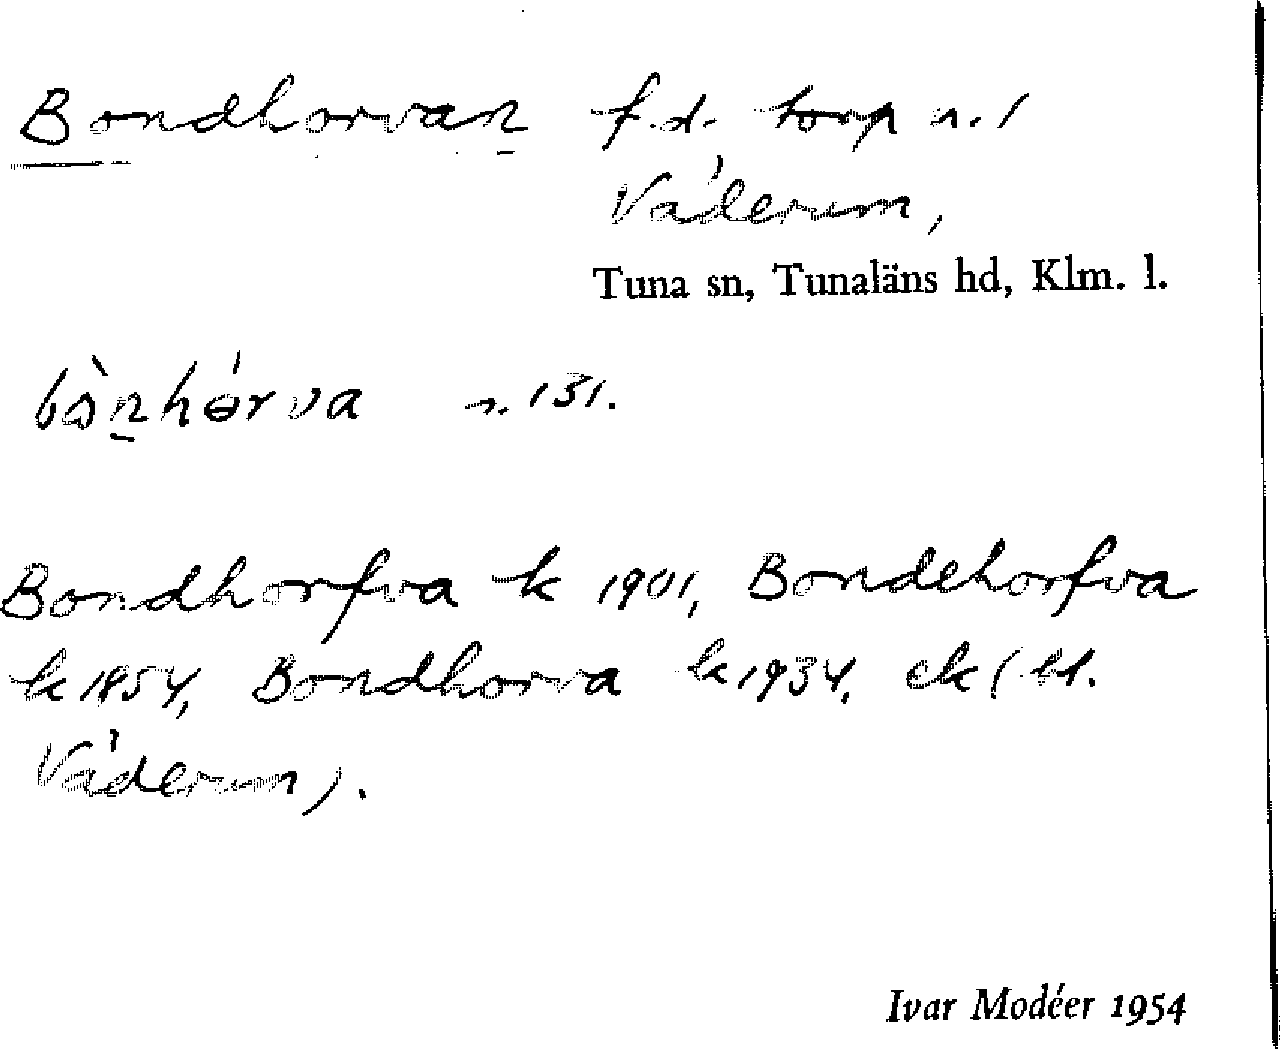 Bondhorvan f.d. torp n.1
Våderum,
Tuna sn, Tunaläns hd, Klm. l.
bo̊̀n̠hɵ́rva n. 131.
Bondhorfva k 1901, Bondehorfva
k 1854, Bondhorva k 1934, ek (bl.
Våderum).
Ivar Modéer 1954